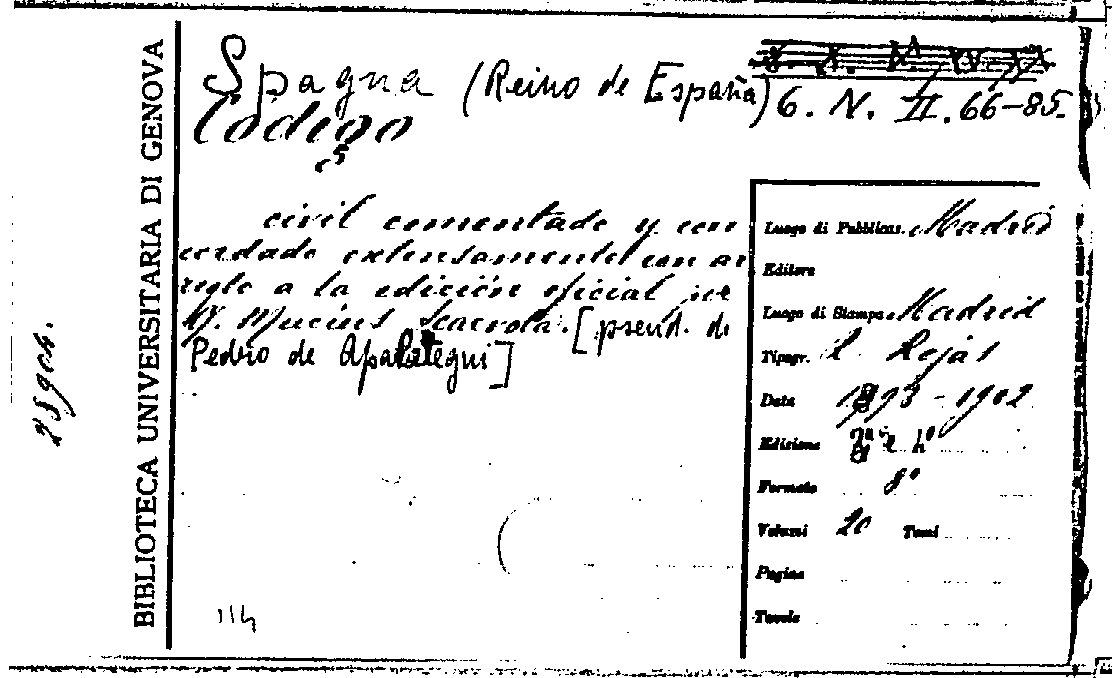 BIBLIOTECA UNIVERSITARIA DI GENOVA
Spagna (Reino de España)
6. N. II. 66-85.
Código
civil comentado y con
cordado extensamente con ar
reglo a la edición oficial por
Q. Mucius Scaevola. [pseud. di
Pedro de Apalategui]
114
Luogo di Pubblicaz. Madrid
Editore
Luogo di Stampa Madrid
Tipogr. R. Rojas
Data 1893-1902
Edizione
Formato 8°
Volumi 20 Tomi
Pagine
Tavole